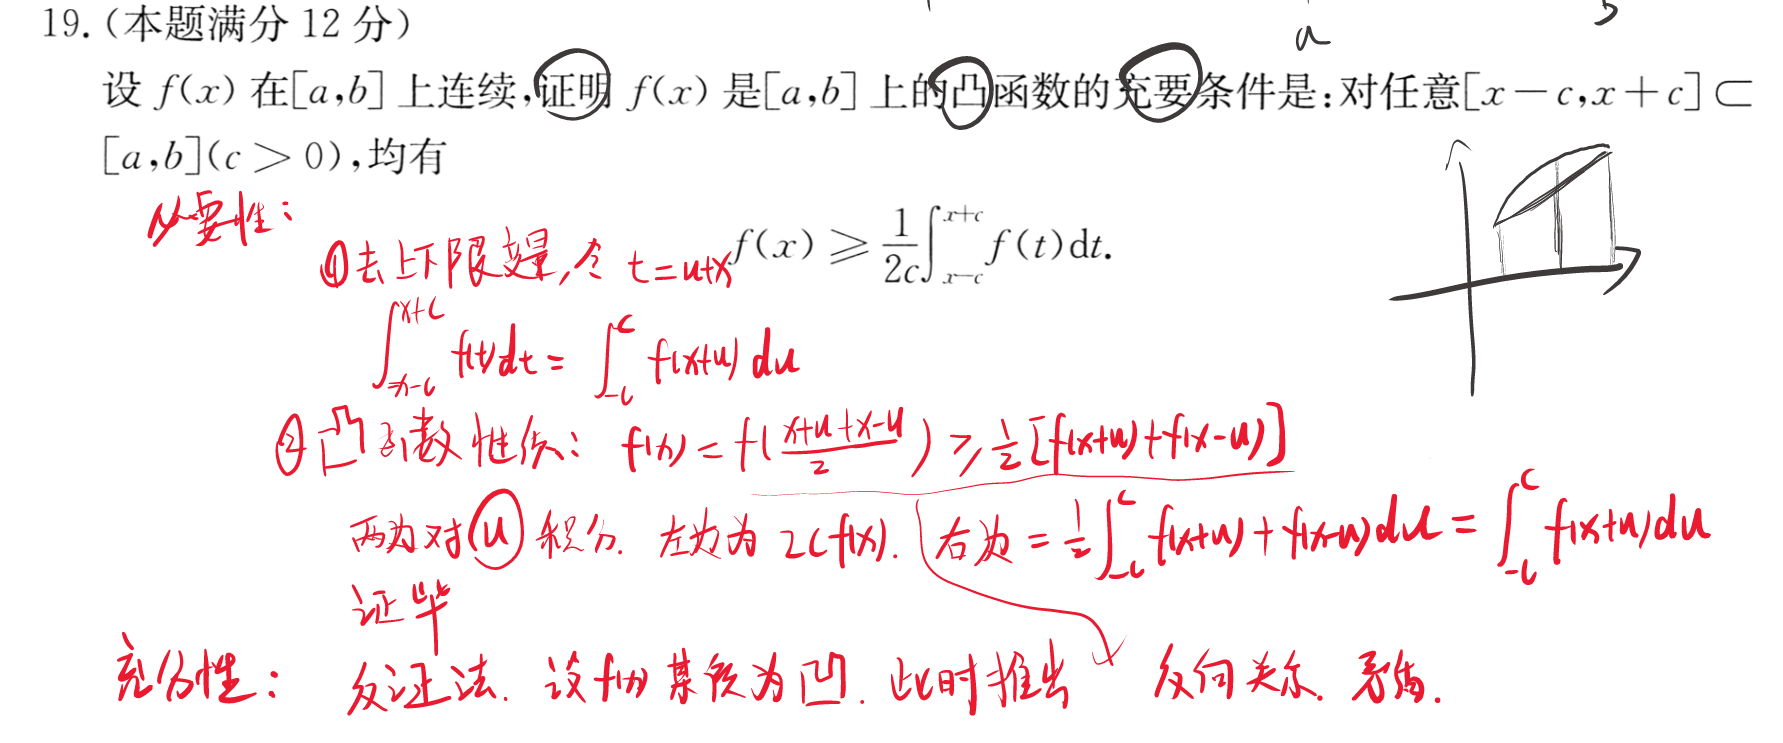 19.(本题满分 12 分)
a b
设 f(x) 在[a,b] 上连续,证明 f(x) 是[a,b] 上的凸函数的充要条件是:对任意[x-c,x+c]⊂
[a,b](c>0),均有
必要性:
f(x) ⩾ \frac{1}{2c}∫_{x-c}^{x+c} f(t)dt.
①去上下限变量,令 t=u+x
∫_{x-c}^{x+c} f(t)dt = ∫_{-c}^{c} f(x+u)du
②凸函数性质: f(x)=f(\frac{x+u+x-u}{2}) ⩾ \frac{1}{2}[f(x+u)+f(x-u)]
两边对 u 积分. 左边为 2cf(x). 右边 = \frac{1}{2}∫_{-c}^{c} f(x+u)+f(x-u)du = ∫_{-c}^{c} f(x+u)du
证毕
充分性: 反证法. 设 f(x) 某段为凹. 此时推出 反向关系. 矛盾.